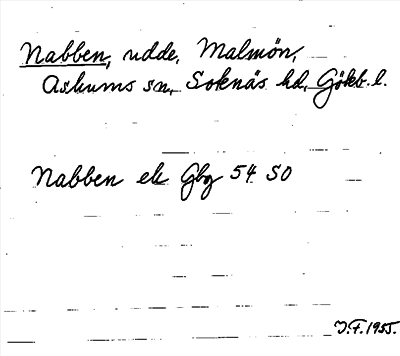 Nabben, udde, Malmön,
Askums sn, Soknäs hd, Gökb. l.
Nabben ek Gbg 54 SO
J.F. 1955.